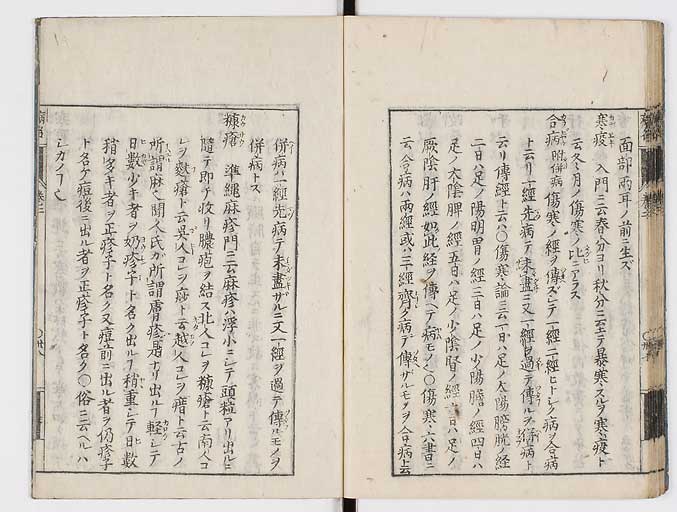 面部兩耳ノ前ニ生ズ
寒疫 入門ニ云春分ヨリ秋分ニ至テ暴寒スルヲ寒疫ト
云冬月ノ傷寒ノ比ニアラス
合病附併病 傷寒ノ經ヲ傳ズシテ一經二經ヒトシク病ヲ合病
ト云リ一經先病テ未盡又一經ヲ過テ傳ルヲ併病ト
云リ傳經ト云ハ〇傷寒論ニ云一日ハ足ノ太陽膀胱ノ経
二日ハ足ノ陽明胃ノ經三日ハ足ノ少陽膽ノ經四日ハ
足ノ太陰脾ノ經五日ハ足ノ少陰腎ノ經六日ハ足ノ
厥陰肝ノ經如此経ヲ傳ヘテ病モノ〇傷寒六書ニ
云合病ハ兩經或ハ三經齊ク病デ傳ザルモノヲ合病ト云
併病ハ一經先病テ未盡ザルニ又一經ヲ過テ傳ルモノヲ
併病トス
糠瘡 準繩麻疹門ニ云麻疹ハ浮小ニシテ頭粒アリ出ルニ
隨テ即チ收リ膿疱ヲ結ス北人コレヲ糠瘡ト云南人コ
レヲ麩瘡ト云呉人コレヲ痧ト云越人コレヲ瘄ト云古ノ
所謂麻ト聞人氏ガ所謂膚疹是ナリ出ルヿ輕シテ
日數少キ者ヲ奶疹子ト名ク出ルヿ稍重シテ日數
稍多キ者ヲ正疹子ト名ク又痘前ニ出ル者ヲ仍疹子
ト名ケ痘後ニ出ル者ヲ正疹子ト名ク〇俗ニ云ヘルハ
シカノヿ也